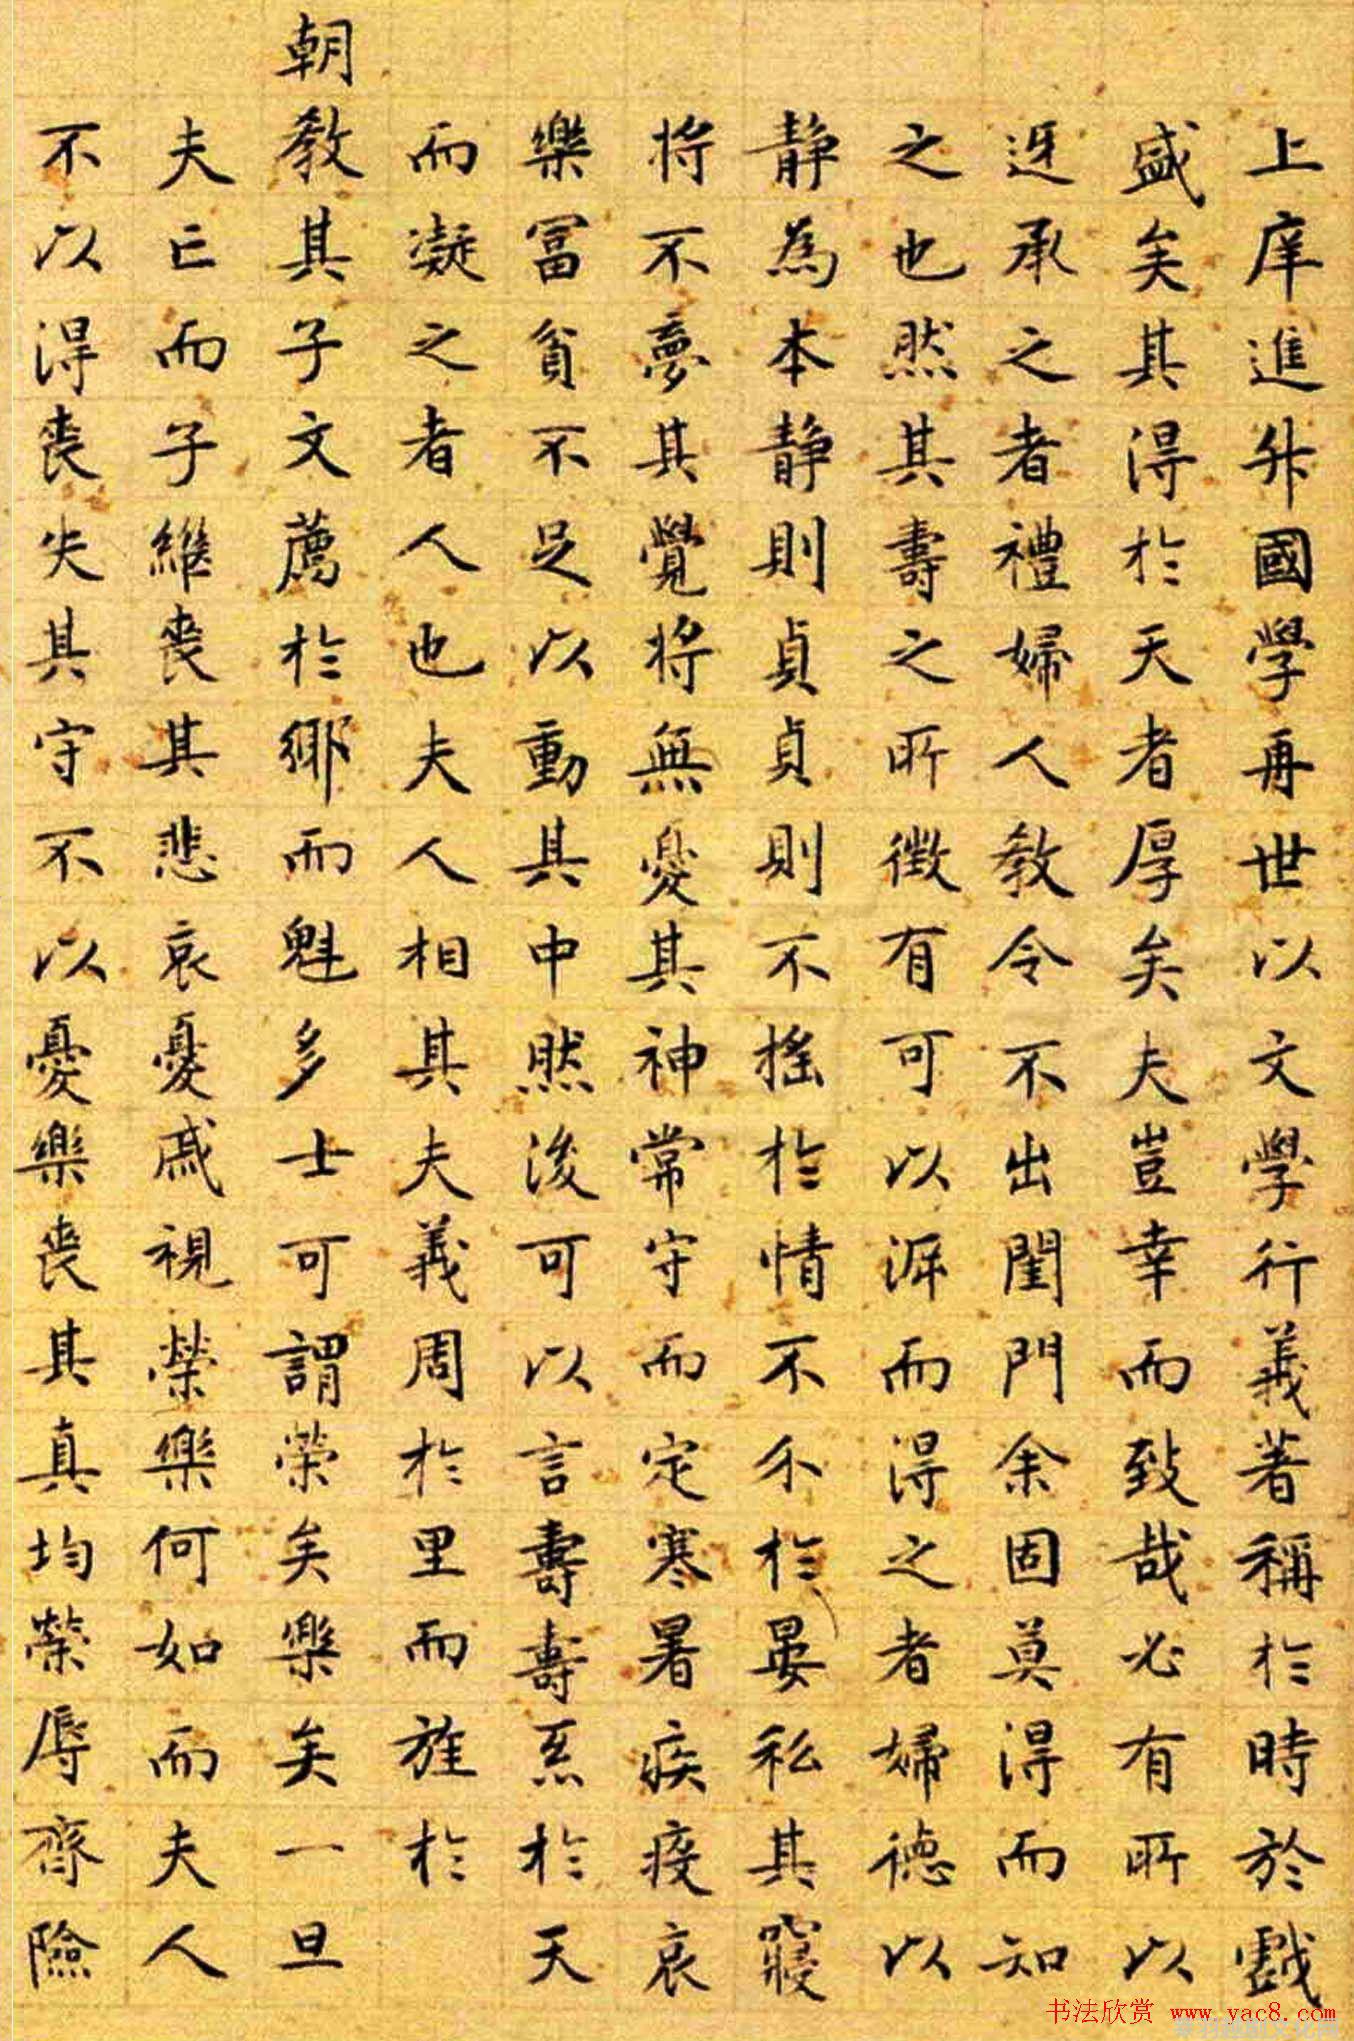 上庠進升國學再世以文學行義著稱於時於戲
盛矣其得於天者厚矣夫豈幸而致哉必有所以
迓承之者禮婦人教令不出閨門余固莫得而知
之也然其壽之所徵有可以泝而得之者婦德以
靜為本靜則貞貞則不搖於情不介於晏私其寢
將不夢其覺將無憂其神常守而定寒暑疾疫哀
樂冨貧不足以動其中然後可以言壽壽系於天
而凝之者人也夫人相其夫義周於里而旌於
朝教其子文薦於鄉而魁多士可謂榮矣樂矣一旦
夫亡而子繼喪其悲哀憂戚視榮樂何如而夫人
不以得喪失其守不以憂樂喪其真均榮辱齊險
书法欣赏 www.yac8.com